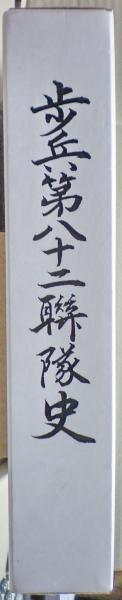 歩兵第八十二聯隊史